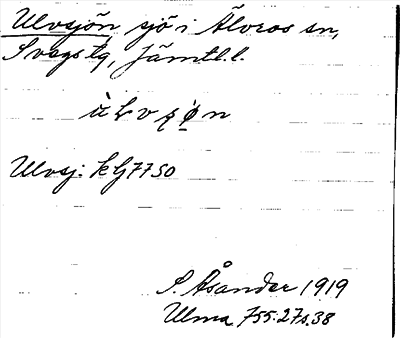 Ulvsjön sjö i Älvros sn,
Svegs tg, Jämtl. l.
Ulvsj: kG7750
S. Åsander 1919
Ulma 755:27 s. 38